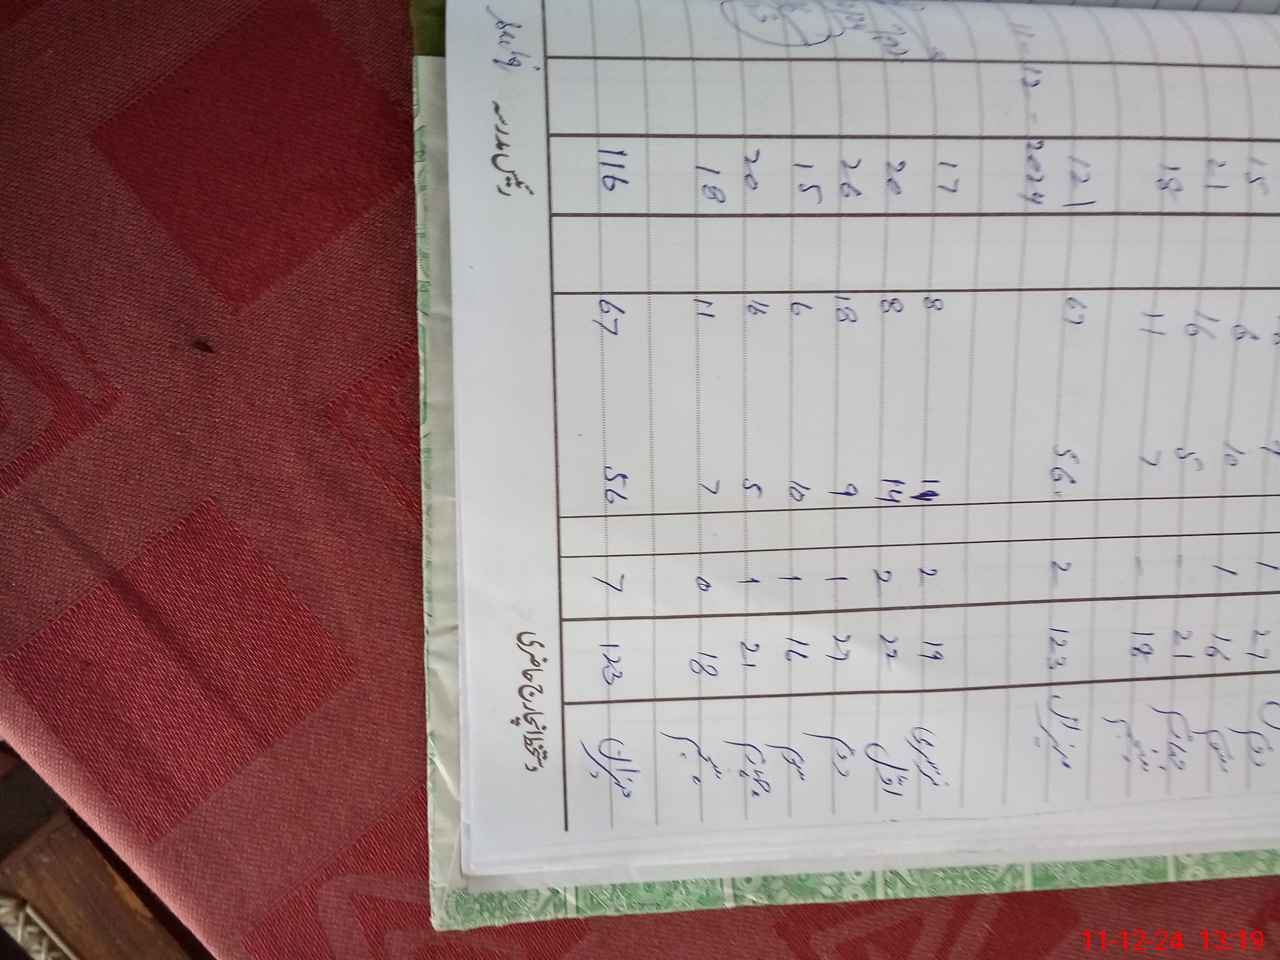 دوم 27 1 9
سوم 16 1 10 6 15
چہارم 21 - 5 16 21
پنجم 18 - 7 11 18
میزان 123 2 56 67 121
11-12-2024
نرسری 19 2 8 17
اول 22 2 14 8 20
دوم 27 1 9 18 26
سوم 16 1 10 6 15
چہارم 21 1 5 16 20
پنجم 18 0 7 11 18
میزان 123 7 56 67 116
دستخط انچارج حاضری رئیس مدرسہ
11-12-24 13:19